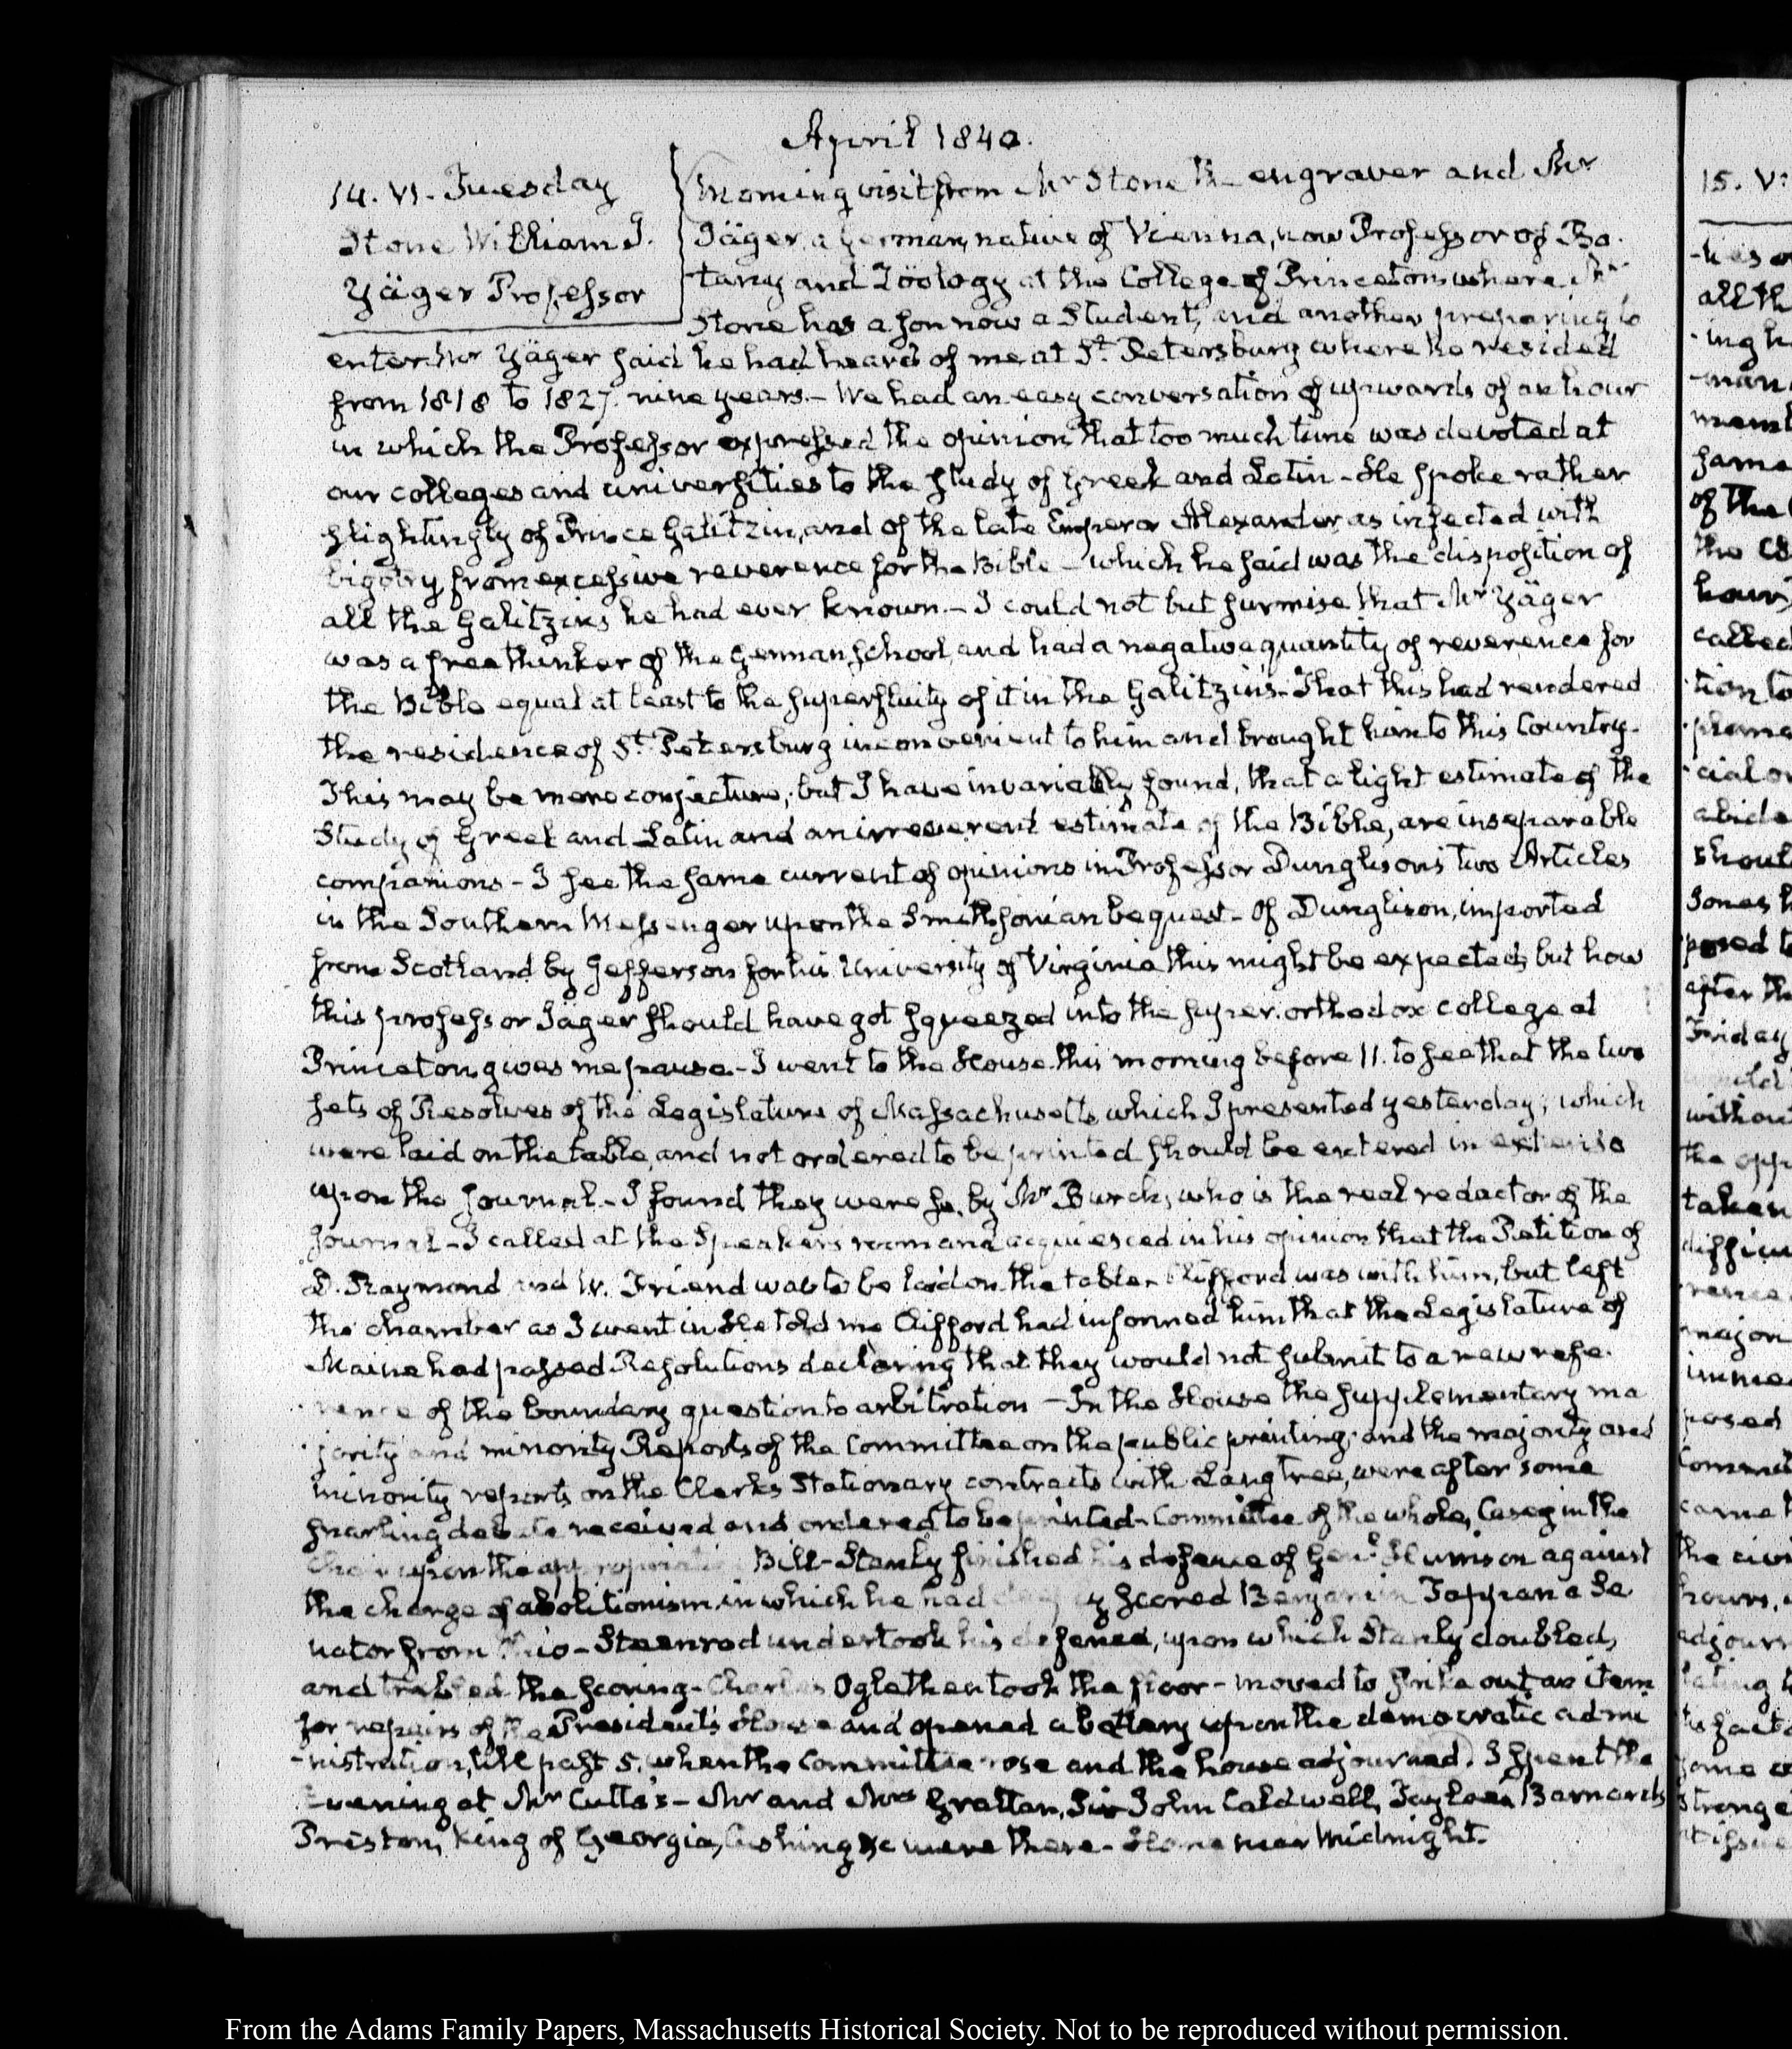 April 1840.
14. VI. Tuesday
Stone William J.
Yäger Professor
Morning visit from Mr Stone the engraver and Mr
Jäger, a German, native of Vienna, now Professor of Bo-
tany and Zöology at the College of Princeton where Mr
Stone has a son now a Student, and another preparing to
enter. Mr Yäger said he had heard of me at St. Petersburg where he resided
from 1818 to 1827. nine years.— We had an easy conversation of upwards of an hour
in which the Professor expressed the opinion that too much time was devoted at
our colleges and universities to the study of Greek and Latin - He spoke rather
slightingly of Prince Galitzin, and of the late Emperor Alexander as infected with
bigotry from excessive reverence for the Bible — which he said was the disposition of
all the Galitzins he had ever known.— I could not but surmise that Mr Yäger
was a free thinker of the German school, and had a negative quantity of reverence for
the Bible equal at least to the superfluity of it in the Galitzins - That this had rendered
the residence of St. Petersburg inconvenient to him and brought him to this Country.
This may be mere conjecture; but I have invariably found, that a light estimate of the
Study of Greek and Latin and an irreverent estimate of the Bible, are inseparable
companions - I see the same current of opinions in Professor Dunglison's two Articles
in the Southern Messenger upon the Smithsonian bequest - Of Dunglison, imported
from Scotland by Jefferson for his University of Virginia this might be expected; but how
this professor Jäger should have got squeezed into the super-orthodox college at
Princeton gives me pause - I went to the House this morning before 11. to see that the two
sets of Resolves of the Legislature of Massachusetts which I presented yesterday; which
were laid on the table, and not ordered to be printed should be entered in extenso
upon the Journal. - I found they were so, by Mr Burch, who is the real redactor of the
Journal - I called at the Speakers room and acquiesced in his opinion that the Petition of
D. Raymond and W. Friend was to be laid on the table - Clifford was with him, but left
the chamber as I went in He told me Clifford had informed him that the Legislature of
Maine had passed Resolutions declaring that they would not submit to a new refe-
rence of the boundary question to arbitration — In the House the supplementary ma
jority and minority Reports of the Committee on the public printing; and the majority and
minority reports on the Clerks Stationary contracts with Langtree, were after some
snarling debate received and ordered to be printed - Committee of the whole, Casey in the
Chair upon the appropriation Bill - Stanly finished his defence of Genl. Harrison against
the charge of abolitionism, in which he had scored Benjamin Tappan a Se
nator from Ohio - Steenrod undertook his defence, upon which Stanly doubled,
and trebled the scoring - Charles Ogle then took the floor - moved to strike out an item
for repairs of the President's House and opened a battery upon the democratic admi
-nistration, till past 5. when the Committee rose and the house adjourned. I spent the
Evening at Mr Cutts's - Mr and Mrs Grattan, Sir John Caldwell, Tayloe, Barnard,
Preston, King of Georgia, Cushing &c were there - Home near Midnight.
15. V
all th
of the
the
hour
called
tion to
cial
abide
shoul
Jones
posed t
after th
Friday
withou
the opp
taken
major
posed
Commit
came
the
hours,
adjour
From the Adams Family Papers, Massachusetts Historical Society. Not to be reproduced without permission.